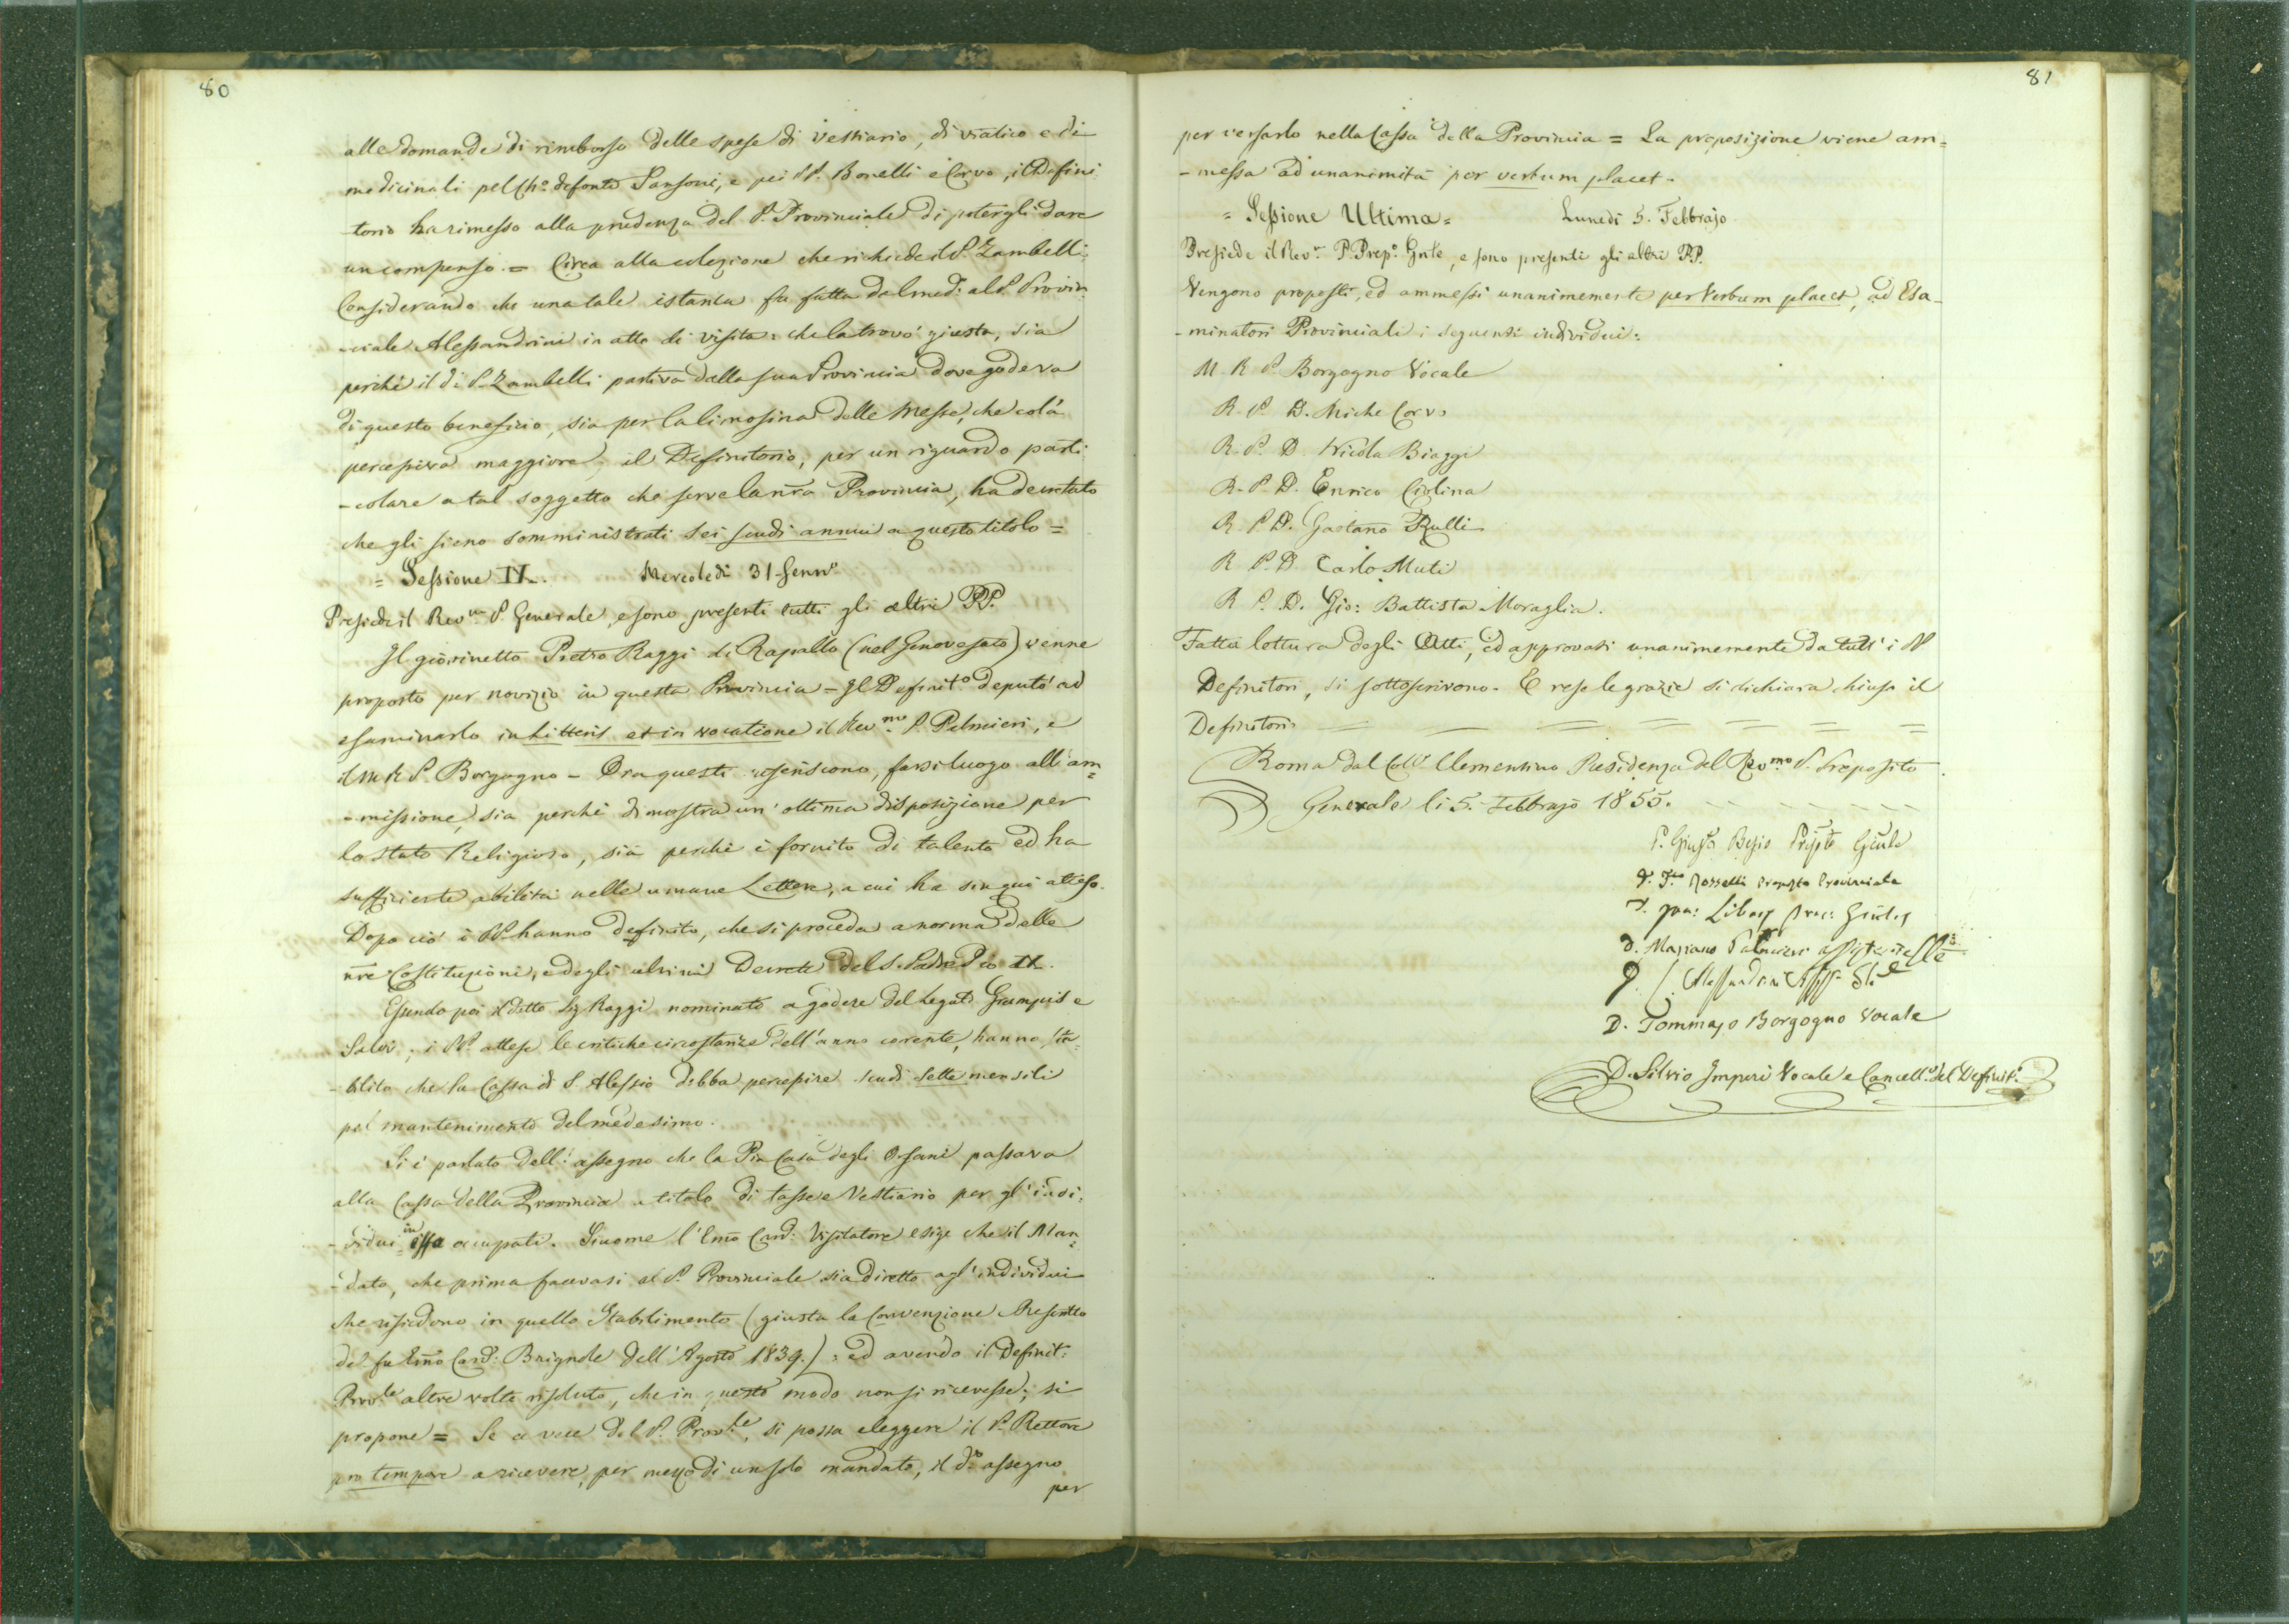 80
alle domande di rimborso delle spese di vestiario, di viatico e di
medicinali pel Ch.º defonto Sansoni, e pei PP. Bonelli e Corvo, il Defini
torio ha rimesso alla prudenza del P. Provinciale di potergli dare
un compenso. = Circa alla colezione che richiede il P. Zambelli:
Considerando che una tale istanza fu fatta dal med: al P. Provin
-ciale Alessandrini in atto di visita: che la trovò giusta, sia
perchè il di P. Zambelli partiva dalla sua Provincia dove godeva
di questo beneficio, sia per la limosina delle Messe, che colà
percepiva maggiore, il Definitorio, per un riguardo parti
-colare a tal soggetto che serve la nra Provincia, ha decretato
che gli sieno somministrati sei scudi annui a questo titolo =
= Sessione IX. Mercoledì 31 Genn.º
Presiede il Rev.mo P. Generale, e sono presenti tutti gli altri PP.
Il giovinetto Pietro Raggi di Rapallo (nel Genovesato) venne
proposto per novizio in questa Provincia - Il Definit.º deputò ad
esaminarlo in Litteris et in vocatione il Rev.mo P. Palmieri, e
il M R P. Borgogno - Ora questi riferiscono, farsi luogo all'am=
-missione, sia perchè dimostra un'ottima disposizione per
lo stato Religioso, sia perchè è fornito di talento ed ha
sufficiente abilità nelle umane Lettere, a cui ha sin qui atteso.
Dopo ciò i PP. hanno definito, che si proceda a norma delle
nre Costituzioni, e degli ultimi Decreti del S. Padre Pio IX.
Essendo poi il detto Sig Raggi nominato a godere del Legato Grampis e
Salvi; i PP. attese le critiche circostanze dell'anno corente, hanno sta
-bilito che la Cassa di S. Alessio debba percepire scudi sette mensili
pel mantenimento del medesimo.
Si è parlato dell'assegno che la Pia Casa degli Orfani passava
alla Cassa della Provincia a titolo di tasse e Vestiario per gl'indi:
-vidui in essa occupati. Siccome l'Emo Card: Visitatore esige che il Man=
-dato, che prima facevasi al P. Provinciale sia diretto agl'individui
che risiedono in quello Stabilimento (giusta la Convenzione e Rescritto
del fu Emo Card: Brignole dell'Agosto 1839.): ed avendo il Definit:
Prov.le altre volte risoluto, che in questo modo non si ricevesse; si
propone = Se a vece del P. Prov.le, si possa eleggere il P. Rettore
pro tempore a ricevere, per mezzo di un solo mandato, il dº assegno
per
81
per versarlo nella Cassa della Provincia = La proposizione viene am=
-messa ad unanimità per verbum placet.
= Sessione Ultima = Lunedì 5. Febbrajo
Presiede il Rev.mo P. Prep.º Gnle, e sono presenti gli altri PP.
Vengono proposti, ed ammessi unanimemente per Verbum placet, ad Esa-
-minatori Provinciali i seguenti individui:
M. R. P. Borgogno Vocale
R. P. D. Miche Corvo
R. P. D. Nicola Biaggi
R. P. D. Enrico Ciolina
R. P. D. Gaetano Rulli
R. P. D. Carlo Muti
R. P. D. Gio: Battista Moraglia.
Fatta lettura degli Atti, ed approvati unanimemente da tutt'i PP
Definitori, si sottoscrivono. E rese le grazie si dichiara chiuso il
Definitorio
Roma dal Coll.º Clementino Residenza del Rev.mo P. Preposito
Generale li 5. Febbrajo 1855.
P. Giusto Besio Prepto Gnle
D. Fco Rosselli Preposto Provinciale
D. Libois Proc: Gnle
D. Mariano Palmieri Assistente
D. Alessandrini
D. Tommaso Borgogno Vocale
D. Silvio Imperi Vocale e Cancell.e del Definit.º